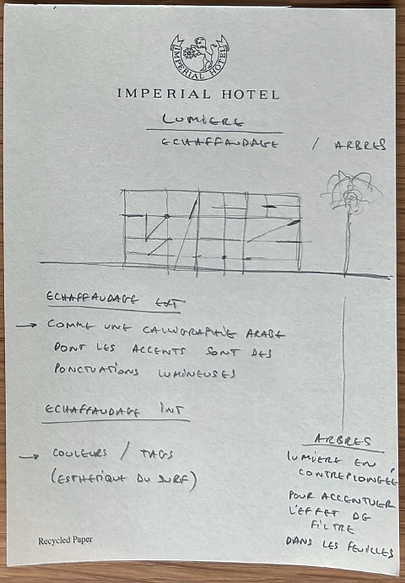 IMPERIAL HOTEL
IMPERIAL HOTEL
LUMIERE
ECHAFFAUDAGE / ARBRES
ECHAFFAUDAGE EXT
→ COMME UNE CALLIGRAPHIE ARABE
DONT LES ACCENTS SONT DES
PONCTUATIONS LUMINEUSES
ECHAFFAUDAGE INT
→ COULEURS / TAGS
(ESTHETIQUE DU SURF)
ARBRES
LUMIERE EN
CONTREPLONGEE
POUR ACCENTUER
L'EFFET DE
FILTRE
DANS LES FEUILLES
Recycled Paper